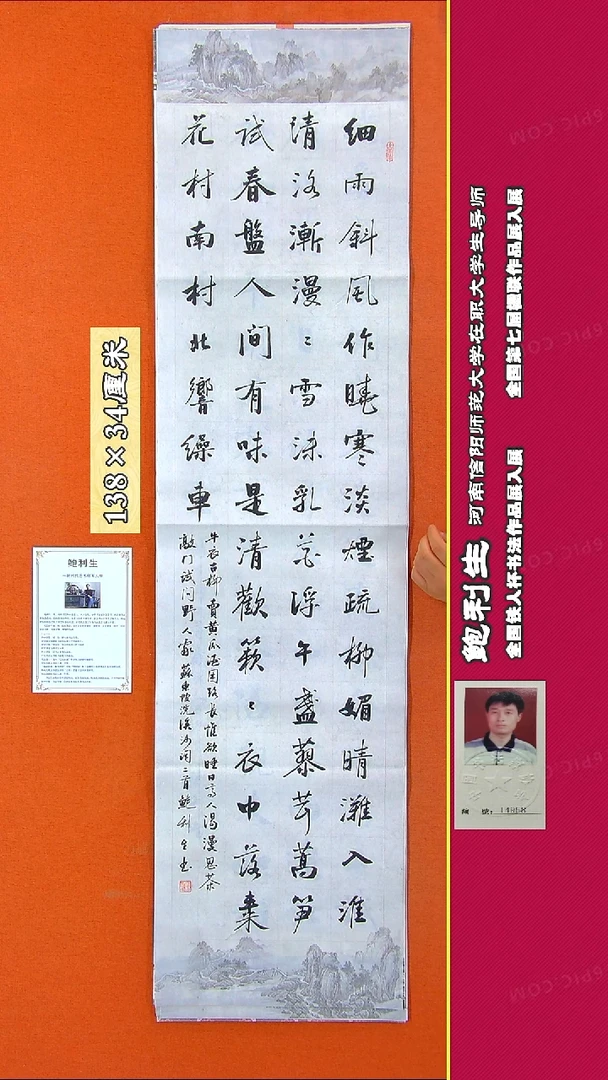 细雨斜風作曉寒淡煙疏柳媚晴灘入淮
清洛漸漫々雪沫乳花浮午盞蓼茸蒿笋
試春盤人間有味是清歡簌々衣巾落棗
花村南村北響繰車
牛衣古柳賣黄瓜酒困路長惟欲睡日高人渴漫思茶
敲门试问野人家 蘇東坡浣溪沙词二首 鲍利生书
138×34厘米
鲍利生
鲍利生 河南信阳师范大学在职大学生导师
全国铁人杯书法作品展入展 全国第七届楹联作品展入展